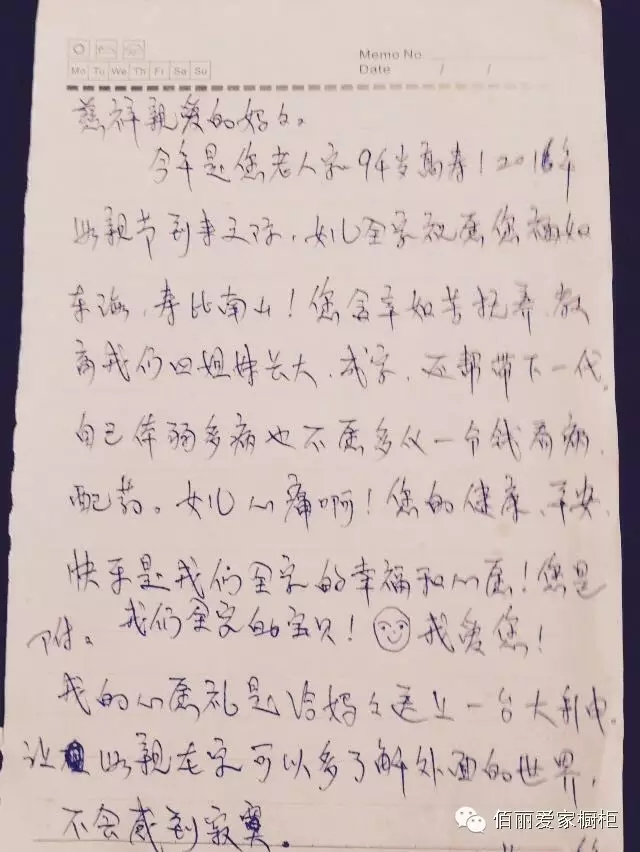 Memo No.
Mo Tu We Th Fr Sa Su
Date / /
慈祥親爱的妈々。
今年是您老人家94岁高寿！2016年
母親节到来之际，女儿全家祝愿您福如
东海、寿比南山！您含辛如苦抚养、教
育我们四姐妹长大、成家，还帮带下一代。
自己体弱多病也不愿多化一个钱看病、
配药。女儿心痛啊！您的健康、平安、
快乐是我们全家的幸福和心愿！您是
我们全家的宝贝！ 我爱您！
附。
我的心愿礼是给妈々送上一台大利中。
让 母親在家可以多了解外面的世界，
不会感到寂寞。
佰丽爱家橱柜